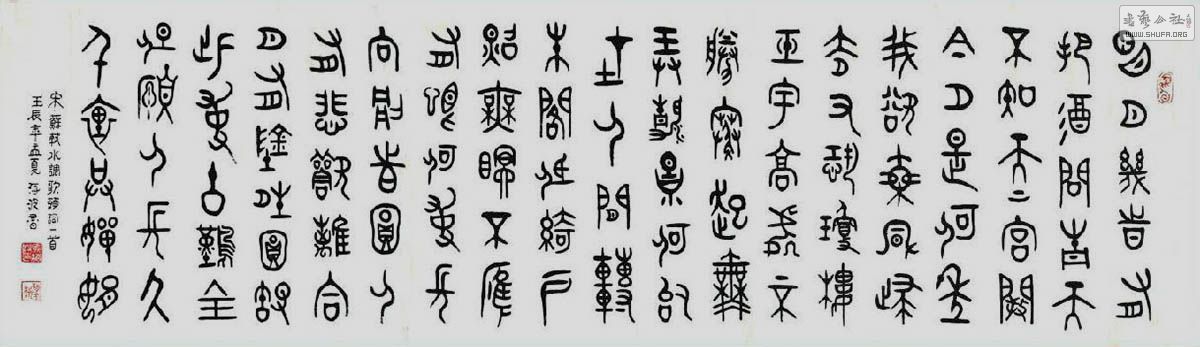 明月幾時有
把酒問青天
不知天上宮闕
今夕是何年
我欲乘風歸
去又恐瓊樓
玉宇高處不
勝寒起舞
弄清景何似
在人間轉
朱閣低綺戶
照無眠不應
有恨何事長
向別時圓人
有悲歡離合
月有陰晴圓缺
此事古難全
但願人長久
千里共嬋娟
宋蘇軾水調歌頭詞一首
壬辰年孟夏書
書藝公社
WWW.SHUFA.ORG